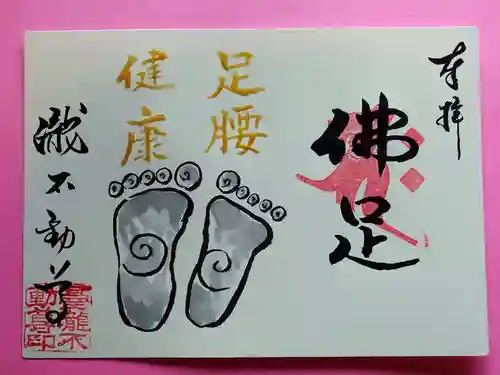 奉拝
佛足
足腰
健康
瀧不動尊
龍不
動尊印